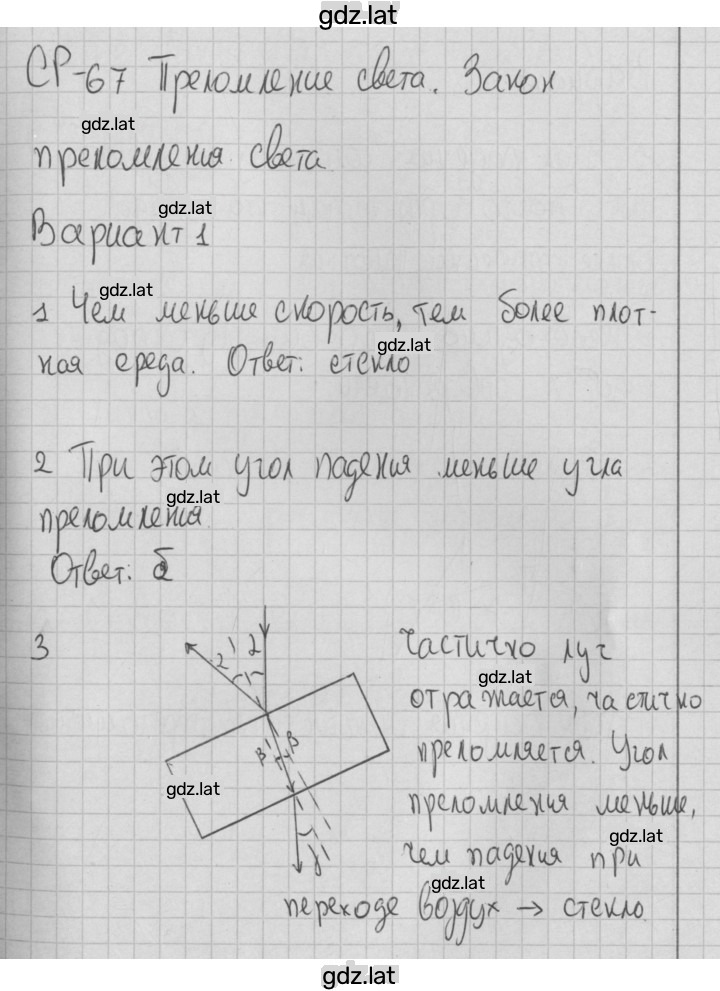 gdz.lat
СР-67 Преломление света. Закон
gdz.lat
преломления света
gdz.lat
Вариант 1
gdz.lat
1 Чем меньше скорость, тем более плот-
gdz.lat
ная среда. Ответ: стекло
2 При этом угол падения меньше угла
gdz.lat
преломления
Ответ: б
3
2 2
частично луч
gdz.lat
отражается, частично
β β
преломляется. Угол
gdz.lat
преломления меньше,
gdz.lat
чем падения при
gdz.lat
переходе воздух → стекло
gdz.lat